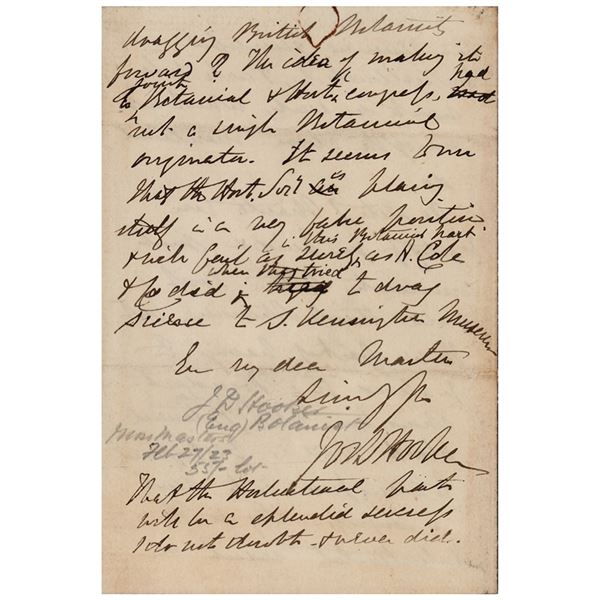 dragging British Botanists
forward ? The idea of making it
a joint Botanical & Hort. congress, had
not a single Botanical
originator. It seems to me
that the Hort. Socy is placing
itself in a very false position
& will fail as surely in this Botanical part
as H. Cole
& Co did when they tried to drag
Science to S. Kensington Museum
Ever my dear Masters
Sincy yrs
Jos D Hooker
J D Hooker
(Eng) Botanist
from Masters
Feb 27/23
55/- lot
That the Horticultural part
will be a splendid success
I do not doubt - & never did.